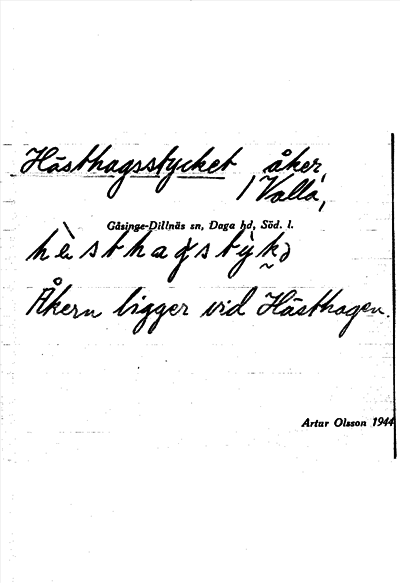 Hästhagsstycket åker,
/ Valla,
Gåsinge-Dillnäs sn, Daga hd, Söd. l.
Åkern ligger vid Hästhagen.
Artur Olsson 1944